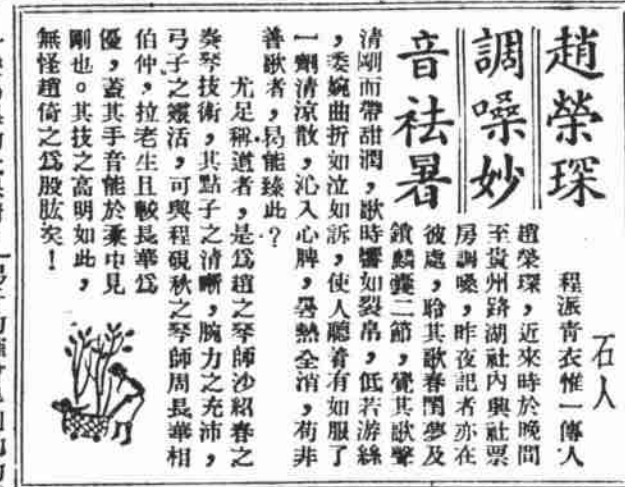 趙榮琛
調嗓妙
音祛暑
石人
程派青衣惟一傳人
趙榮琛，近來時於晚間
至貴州路湖社內興社票
房調嗓，昨夜記者亦在
彼處，聆其歌春閨夢及
鎖麟囊二節，覺其歌聲
清剛而帶甜潤，歌時響如裂帛，低若游絲
，委婉曲折如泣如訴，使人聽着有如服了
一劑清凉散，沁入心脾，暑熱全消，苟非
善歌者，曷能臻此？
尤足稱道者，是爲趙之琴師沙紹春之
奏琴技術，其點子之清晰，腕力之充沛，
弓子之靈活，可與程硯秋之琴師周長華相
伯仲，拉老生且較長華爲
優，蓋其手音能於柔中見
剛也。其技之高明如此，
無怪趙倚之爲股肱矣！